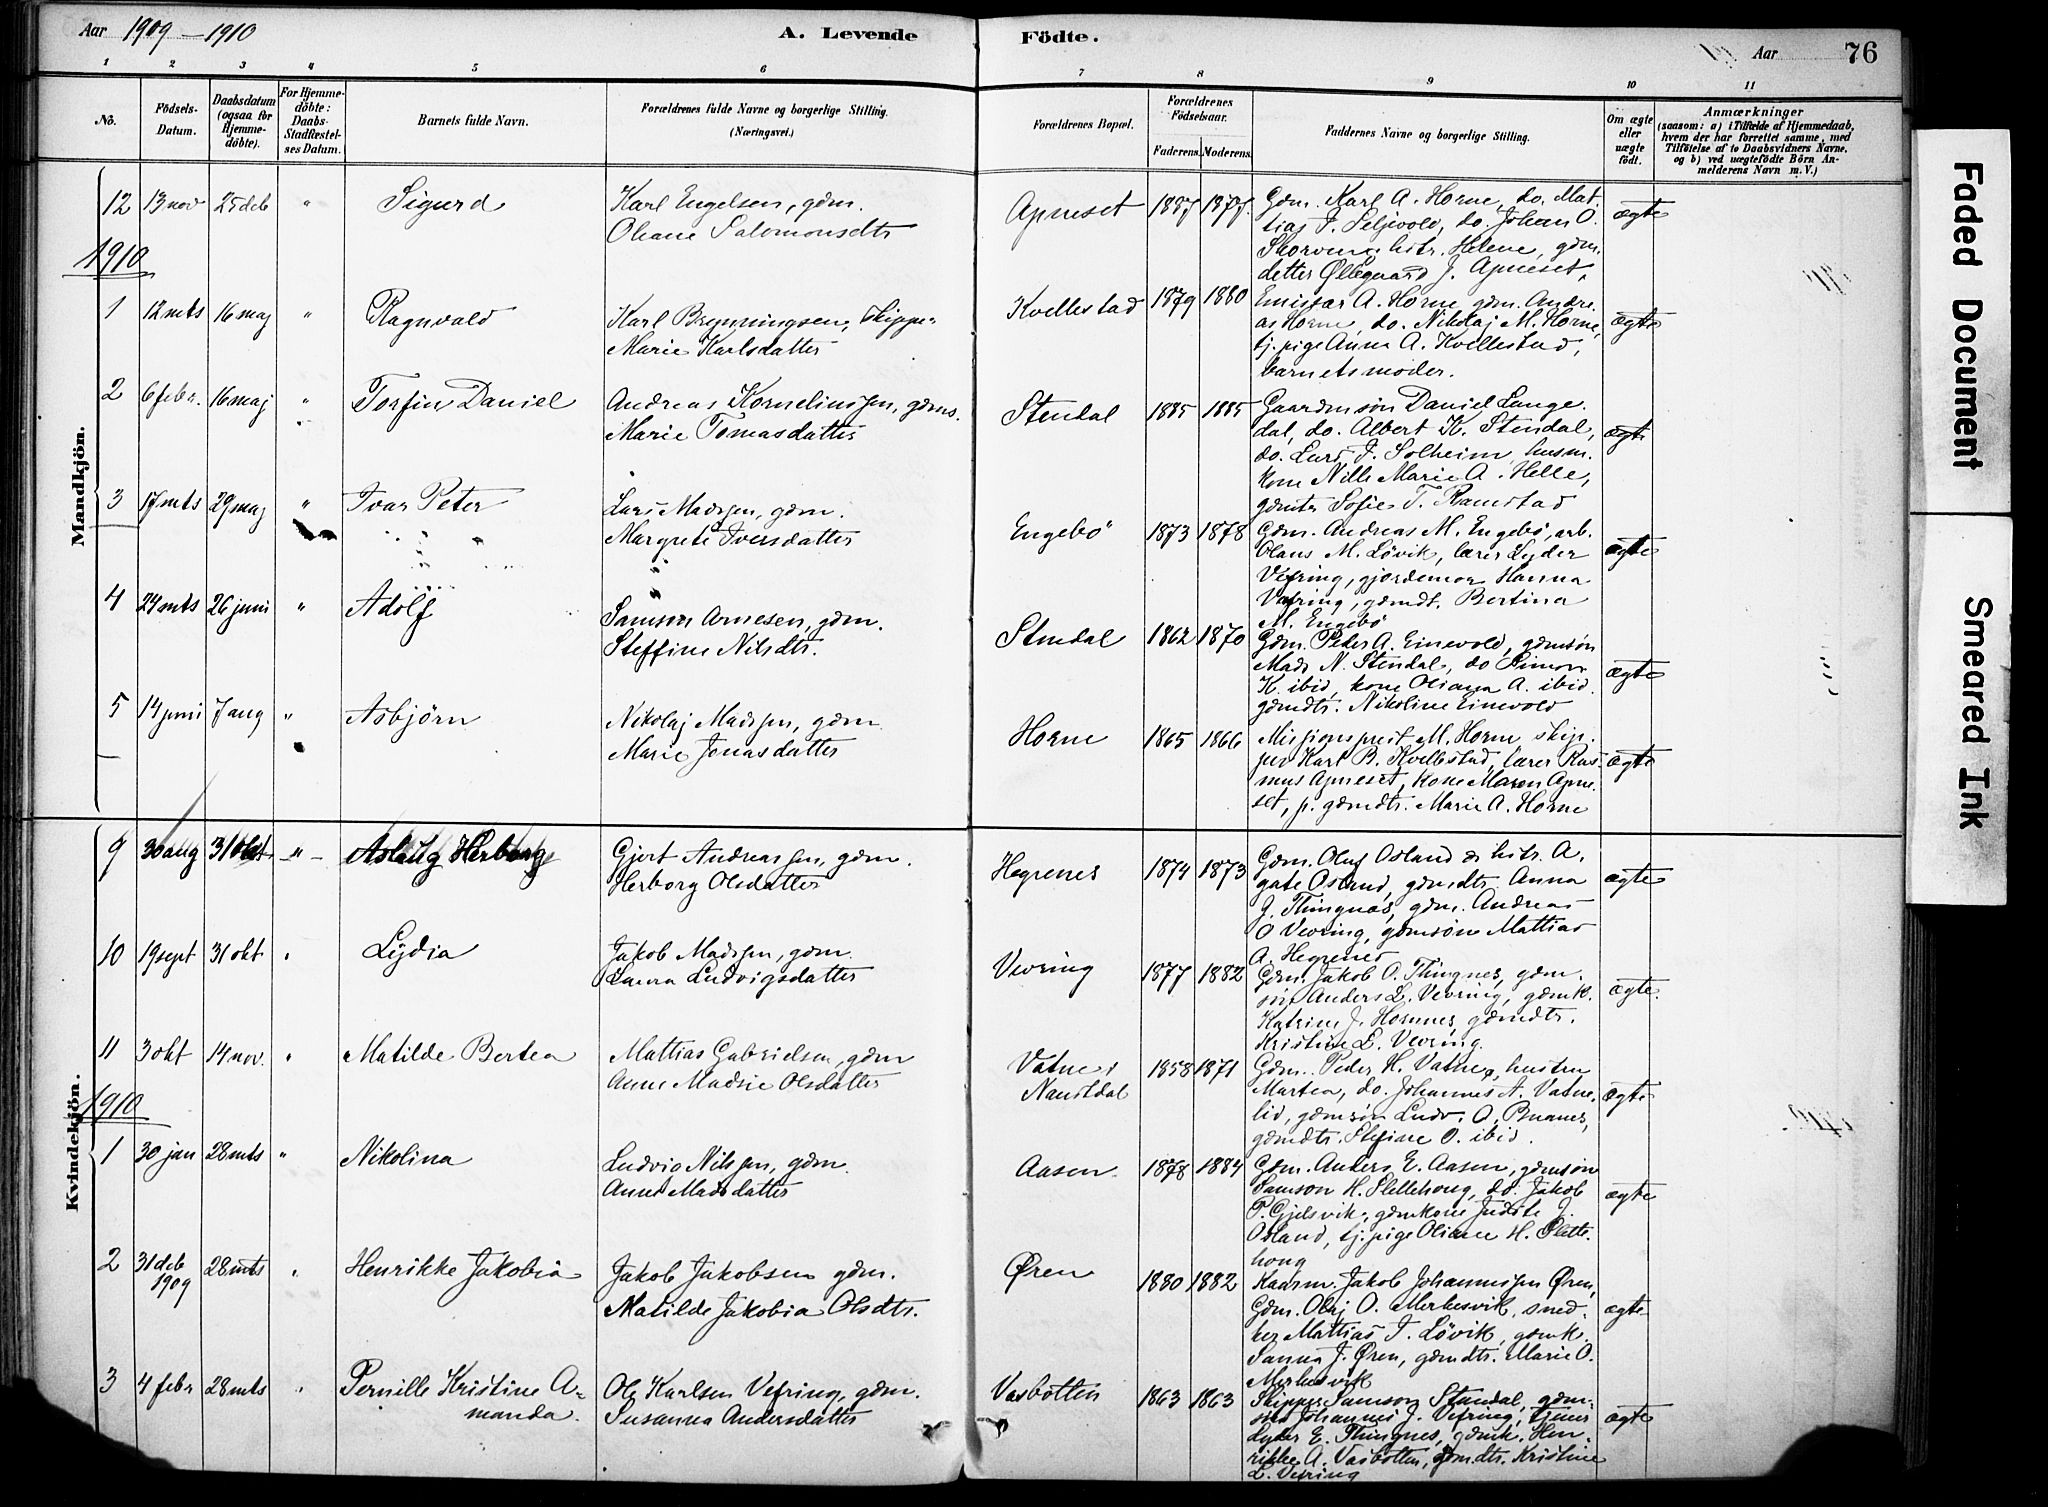 Aar 1909 – 1910 A. Levende Födte. Aar 76
1 2 3 4 5 6 7 8 9 10 11
No. Födsels-Datum. Daabsdatum (ogsaa for Hjemmedöbte). For Hjemmedöbte: Daabs-Stadfæstelses Datum. Barnets fulde Navn. Forældrenes fulde Navne og borgerlige Stilling. (Næringsvei.) Forældrenes Bopæl. Forældrenes Födselsaar. Faderens. Moderens. Faddernes Navne og borgerlige Stilling. Om ægte eller uægte födt. Anmærkninger (saasom: a) i Tilfælde af Hjemmedaab, hvem der har forrettet samme, med Tilföielse af to Daabsvidners Navne, og b) ved uægtefödte Börn Anmelderens Navn m. V.)
Mandkjön.
12 13 nov 25 deb " Sigurd Karl Engelsen, gdm. Apneset 1887 1877. Gdm. Karl A. Horne, do. Mat-
Oliane Salomonsdtr tias J. Seljevold, do. Johan O. ægte
Skorven, hstr. Helene, gdm.
1910
detter Øllegaard J. Apneset.
1 12 mts 16 maj " Ragnvald Karl Brynningsen, Skipper Kvellestad 1879 1880 Emissær A. Horne, gdm. Andre-
Marie Karlsdatter as Horne, do. Nikolaj M. Horne, ægte
tj. pige Anna A. Kvellestad,
barnets moder.
2 6 febr. 16 maj " Torfin Daniel Andreas Korneliussen, gdms. Stendal 1885 1885 Gaardmsøn Daniel Lange-
Marie Tomasdatter dal, do. Albert K. Stendal, ægte
do. Lars J. Solheim, husm.
kone Nille Marie A. Helle,
gdmtr Sofie T. Ramstad
3 17 mts 29 maj " Ivar Peter Lars Madssen, gdm. Engebö 1873 1878 Gdm. Andreas M. Engebö, arb.
Margrete Iversdatter Olaus M. Lövik, lærer Lyder ægte
Vefring, gjordemor Hanna
Vefring, gdmdt. Bertina
M. Engebö
4 24 mts 26 juni " Adolf Samson Arnesen, gdm. Stendal 1862 1870 Gdm. Peter A. Einevold, gdmsön
Steffine Nilsdtr. Mads N. Stendal, do Simon ægte
K. ibid, kone Oliana A. ibid.
gdmdtr. Nikoline Einevold
5 14 juni 7 aug " Asbjörn Nikolaj Madssen, gdm Horne 1865 1866 Missionsprest M. Horne, skip-
Marie Jonasdatter per Karl B. Kvellestad, lærer Ras- ægte
mus Apneset, kone Maren Apne-
set, p. gdmdtr. Marie A. Horne
Kvindekjön.
9 30 aug 31 okt – " – Aslaug Herborg Gjert Andreassen, gdm. Hegrenes 1874 1873 Gdm. Oluf Osland & hstr. A.
Herborg Olsdatter gate Osland, gdmdtr. Anna ægte
J. Thingnæs, gdm. Andreas
O Vevring, gdmsöne Mattias
A. Hegrenes
10 19 sept 31 okt " Lydia Jakob Madssen, gdm. Vevring 1877 1882 Gdm. Jakob O. Thingnes, gdm.
Laura Ludvigsdatter sön Anders L. Vevring, gdmk. ægte.
Katrine J. Hornnes, gdmdtr.
Kristine L. Vevring.
11 3 okt 14 nov. " Matilde Bertea Mattias Gabrielsen, gdm Vatne i 1858 1871 Gdm. Peder H. Vatne, hustru
Anne Madsie Olsdatter Naustdal Martea, do. Johannes A. Vatne- ægte
lid, gdmsön Ludv. O. Buanes,
1910
gdmdtr. Stefine O. ibid.
1 30 jan 28 mts " Nikolina Ludvig Nilssen, gdm. Aasen 1878 1884 Gdm. Anders E. Aasen, gdmsön
Anne Madsdatter Samson H. Slettehoug, do. Jakob ægte
P. Gjelsvik, gdmkone Judite J.
Osland, tj. pige Oliane H. Slette-
houg
2 31 deb 1909 28 mts " Henrikke Jakobia Jakob Jakobsen gdm. Øren 1880 1882 Kaarm. Jakob Johannessen Øren,
Matilde Jakobia Olsdtr. Gdm. Olaj O. Merkesvik, sned- ægte
ker Mattias J. Lövik, gdmk.
Sanna J. Øren, gdmdtr. Marie O.
Merkesvik
3 4 febr 28 mts " Pernille Kristine A- Ole Karlsen Vefring, gdm. Vasbotten 1863 1863 Skipper Samson Stendal, gdm.
manda. Susanna Andersdatter sön Johannes J. Vefring, tjener ægte
Lyder E. Thingnes, gdmk. Hen-
rikke A. Vasbotten, gdmdtr. Kristine
L. Vefring
Faded Document
Smeared Ink